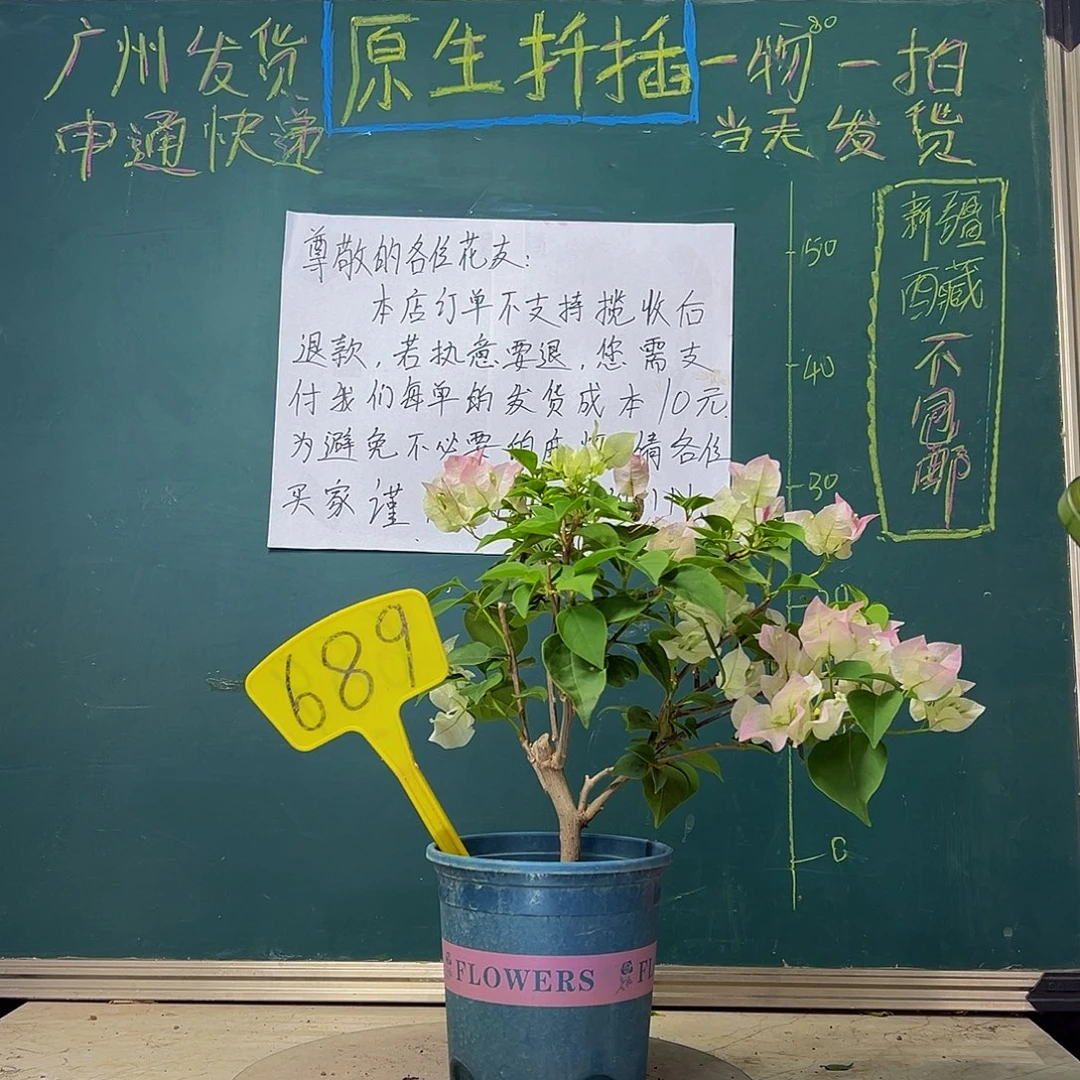 广州发货
原生扦插
一物一拍
80
申通快递
当天发货
尊敬的各位花友:
本店订单不支持揽收后
退款,若执意要退,您需支
付我们每单的发货成本10元.
为避免不必要的麻烦 请各位
买家谨
50
40
30
0
新疆
西藏
不
包
邮
689
FLOWERS
FL